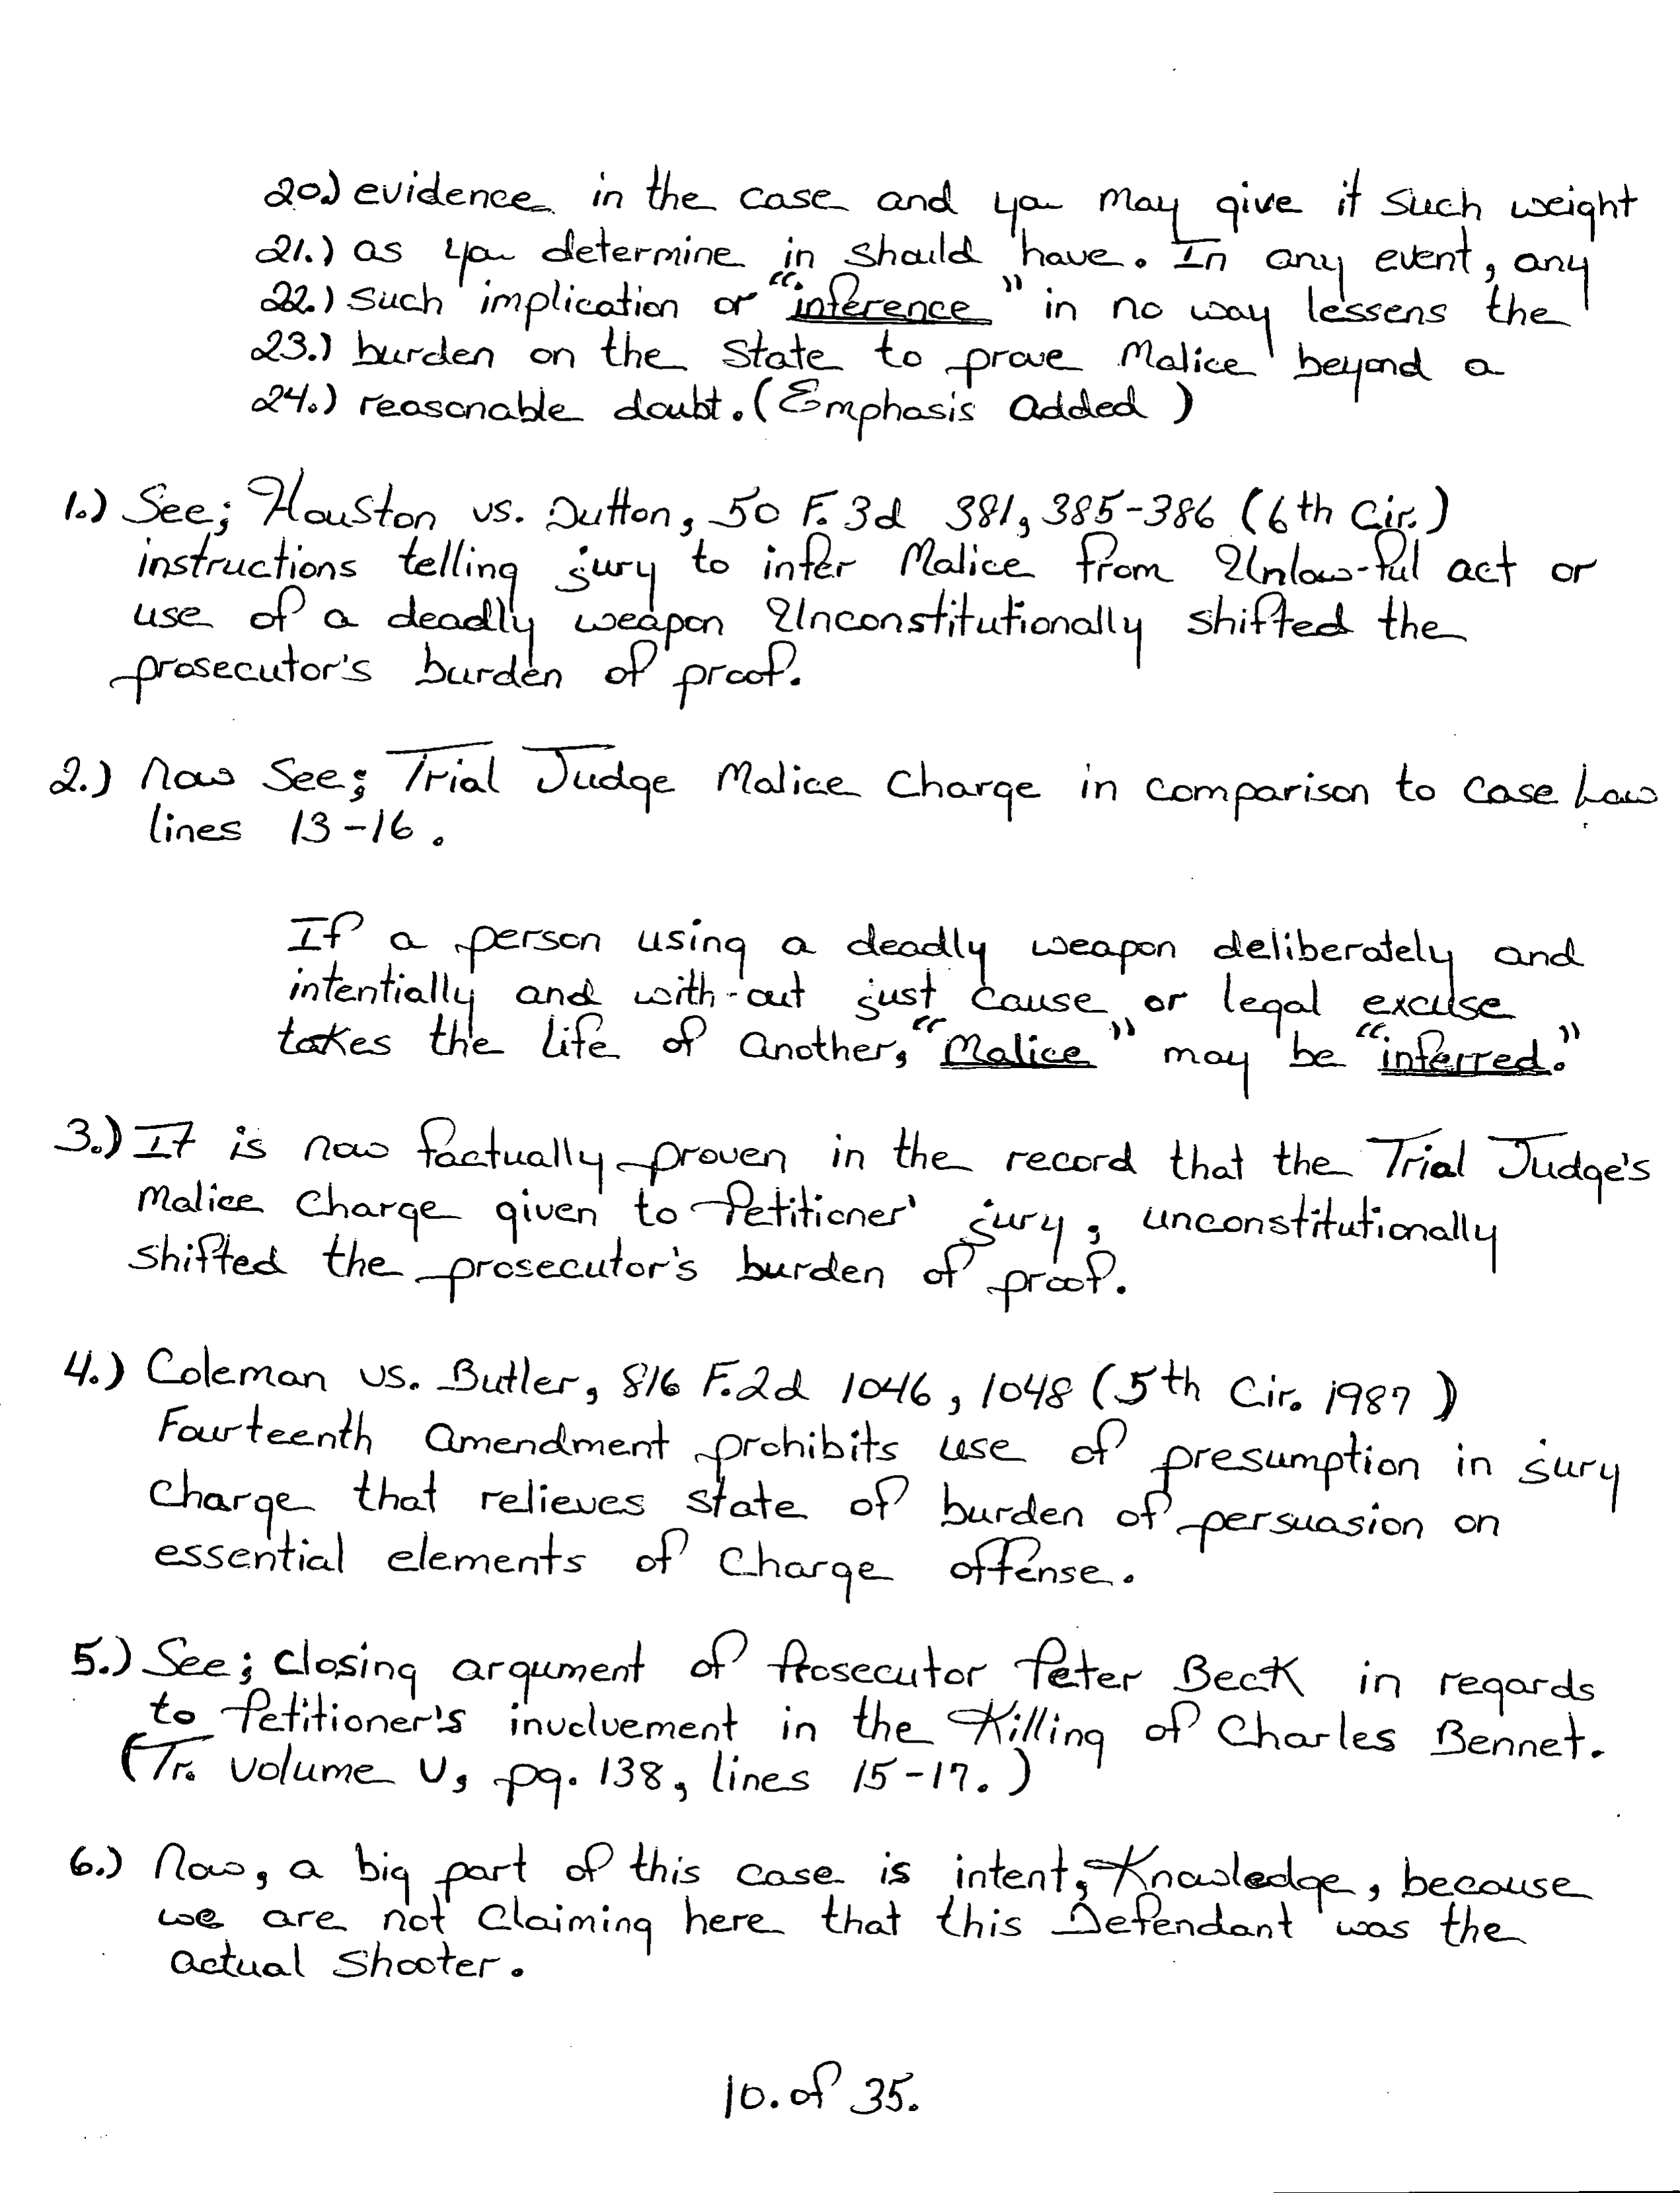 20.) evidence in the case and you may give it such weight
21.) as you determine in should have. In any event, any
22.) such implication or "inference" in no way lessens the
23.) burden on the State to prove Malice beyond a
24.) reasonable doubt. (Emphasis Added)
1.) See; Houston vs. Dutton, 50 F. 3d 381, 385-386 (6th Cir.)
instructions telling jury to infer Malice from Unlaw-ful act or
use of a deadly weapon Unconstitutionally shifted the
prosecutor's burden of proof.
2.) Now See; Trial Judge Malice Charge in comparison to Case Law
lines 13-16.
If a person using a deadly weapon deliberately and
intentially and with-out just cause or legal excuse
takes the life of Another, "Malice" may be "inferred."
3.) It is now factually proven in the record that the Trial Judge's
Malice Charge given to Petitioner' jury, unconstitutionally
shifted the prosecutor's burden of proof.
4.) Coleman vs. Butler, 816 F.2d 1046, 1048 (5th Cir. 1987)
Fourteenth Amendment prohibits use of presumption in jury
charge that relieves state of burden of persuasion on
essential elements of Charge offense.
5.) See; Closing argument of Prosecutor Peter Beck in regards
to Petitioner's involvement in the Killing of Charles Bennet.
(Tr. Volume V, pg. 138, lines 15-17.)
6.) Now, a big part of this case is intent, Knowledge, because
we are not Claiming here that this Defendant was the
actual Shooter.
10. of 35.